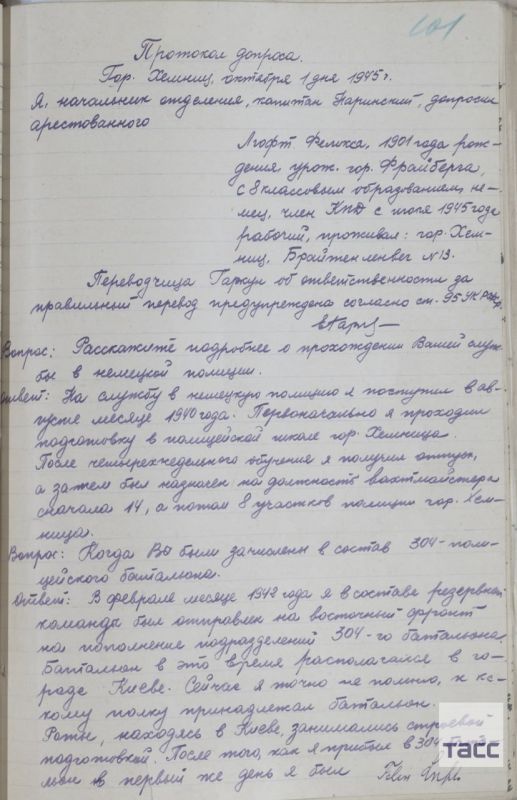 101
Протокол допроса.
Гор. Хемниц, октября 1 дня 1945 г.
Я, начальник отделения, капитан Наринский, допросил
арестованного
Люфт Феликса, 1901 года рож-
дения, урож. гор. Фрайберга,
с 8 классовым образованием, не-
мец, член КПД с июля 1945 года
рабочий, проживал: гор. Хем-
ниц, Брайтенленвег № 13.
Переводчица Гаркун об ответственности за
правильный перевод предупреждена согласно ст. 95 УК РСФСР
Вопрос: Расскажите подробнее о прохождении Вашей служ-
бы в немецкой полиции.
Ответ: На службу в немецкую полицию я поступил в ав-
густе месяце 1940 года. Первоначально я проходил
подготовку в полицейской школе гор. Хемница.
После четырехнедельного обучения я получил отпуск,
а затем был назначен на должность вахтмайстера
сначала 14, а потом 8 участков полиции гор. Хем-
ница.
Вопрос: Когда Вы были зачислены в состав 304-поли-
цейского батальона.
Ответ: В феврале месяце 1942 года я в составе резервной
команды был отправлен на восточный фронт
на пополнение подразделений 304-го батальона.
Батальон в это время располагался в го-
роде Киеве. Сейчас я точно не помню, к ка-
кому полку принадлежал батальон.
Роты, находясь в Киеве, занимались строевой
подготовкой. После того, как я прибыл в 304
льон в первый же день я был
ТАСС